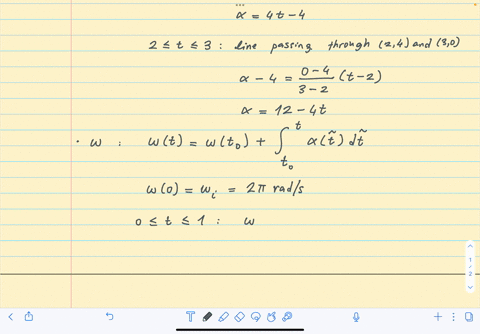 α = 4t − 4
2 ≤ t ≤ 3 : line passing through (2,4) and (3,0)
α − 4 = \frac{0 − 4}{3 − 2} (t − 2)
α = 12 − 4t
· ω : ω(t) = ω(t₀) + ∫_{t₀}^{t} α(t̃) dt̃
ω(0) = ωᵢ = 2π rad/s
0 ≤ t ≤ 1 : ω
1
/
2